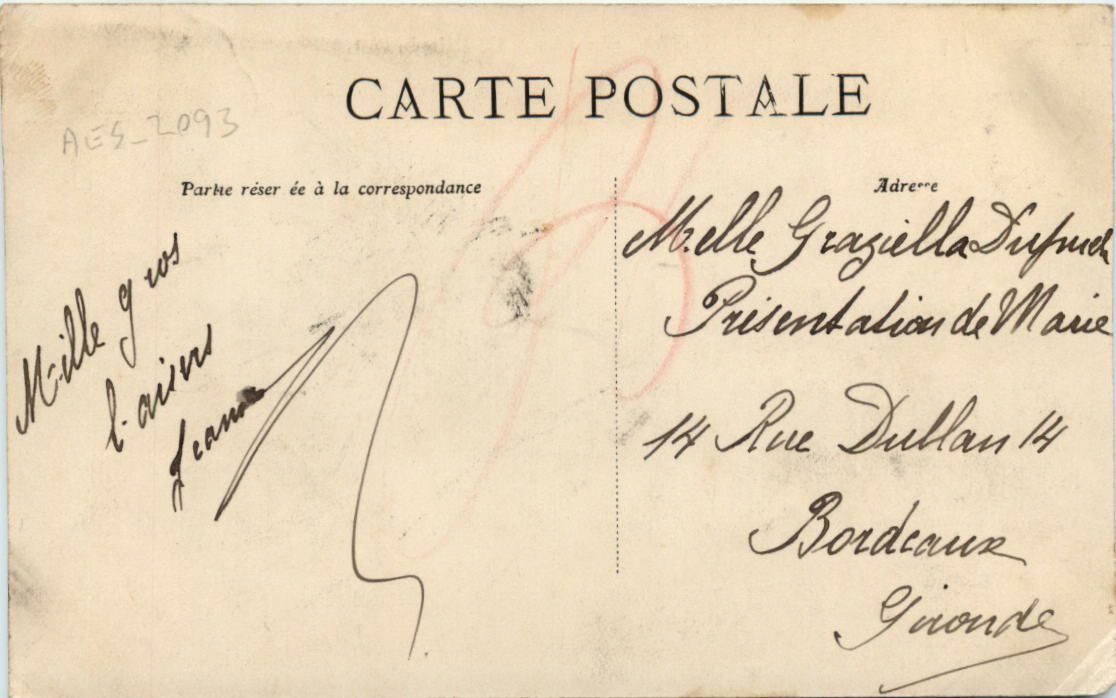 CARTE POSTALE
AES_2093
Partie réser ée à la correspondance
Adresse
Mille gros
baisers
Jeanne
Melle Graziella
Présentation de Marie
14 Rue Dublan 14
Bordeaux
Gironde